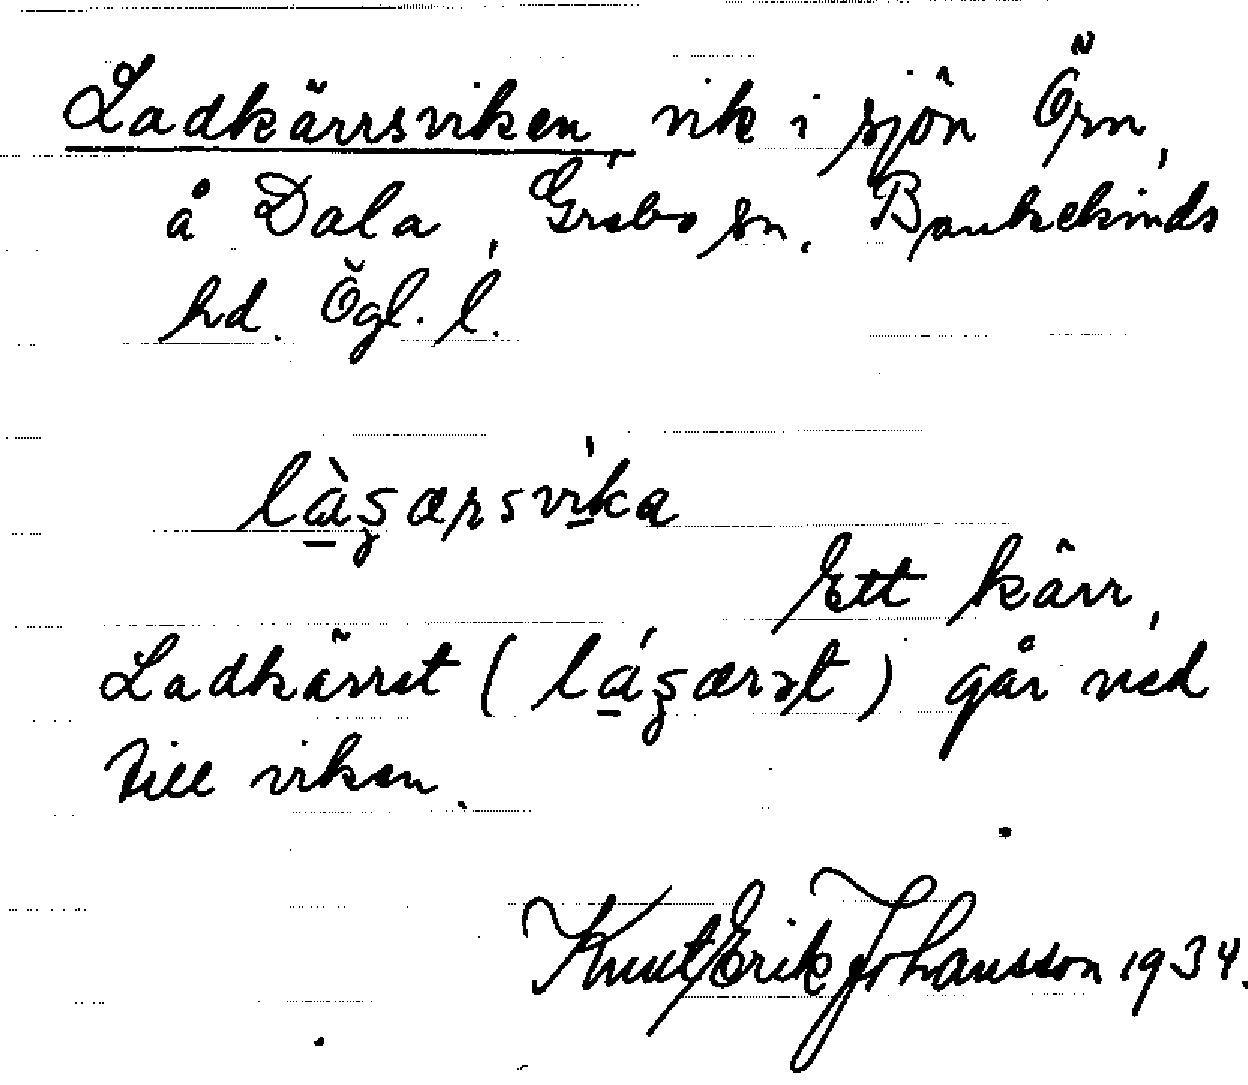 Ladkärrsviken, vik i sjön Örn,
å Dala, Grebo sn. Bankekinds
hd. Ögl. l.
làʒærsvika
Ett kärr,
Ladkärret (láʒærət) går ned
till viken.
Knut Erik Johansson 1934.